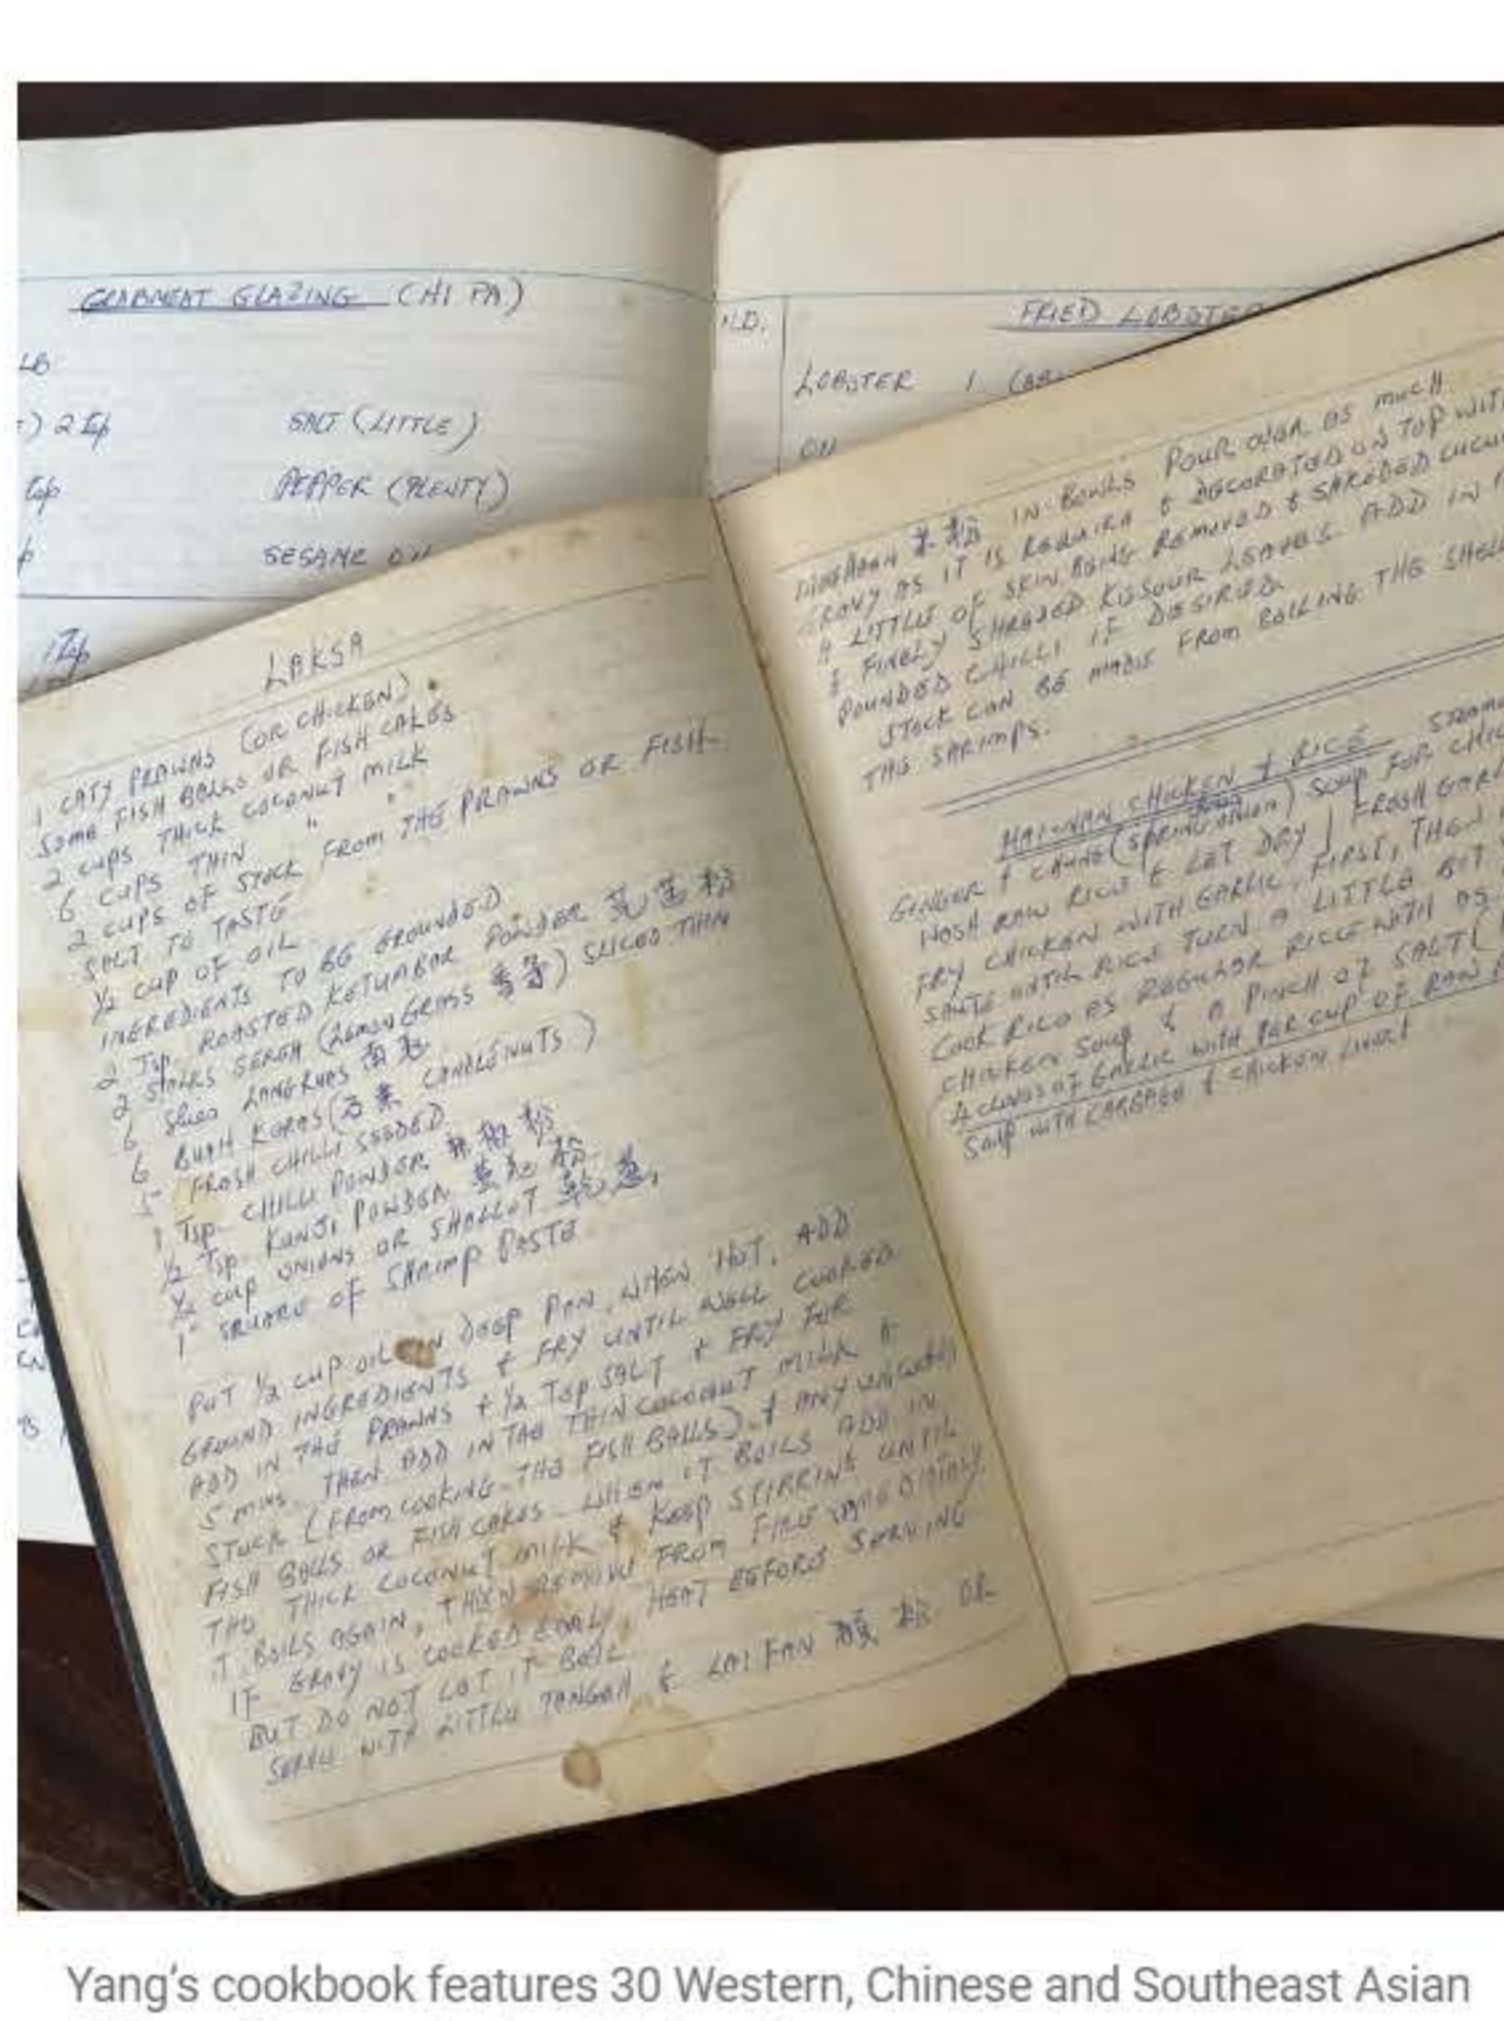 CRABMEAT GLAZING (HI PA)
LB
2 Tsp SALT (LITTLE)
Tsp PEPPER (PLENTY)
SESAME OIL
1 Tsp
N.D.
FRIED LOBSTER
LOBSTER 1
LAKSA
1 CATY PRAWNS (OR CHICKEN)
SOME FISH BALLS OR FISH CAKES
2 CUPS THICK COCONUT MILK
6 CUPS THIN " "
2 CUPS OF STOCK FROM THE PRAWNS OR FISH
SALT TO TASTE
½ CUP OF OIL
INGREDIENTS TO BE GROUNDED
2 Tsp. ROASTED KETUMBAR POWDER 芫茜粉
2 STALKS SERAH (LEMON GRASS 香茅) SLICED THIN
6 Slices LANGKUAS 南姜
6 BUAH KERAS (石栗 CANDLENUTS)
5 FRESH CHILLI SEEDED
1 Tsp CHILLI POWDER 辣椒粉
½ Tsp. KUNJI POWDER 黄姜粉
¼ CUP ONIONS OR SHALLOT 乾葱
1" SQUARE OF SHRIMP PASTE
PUT ½ CUP OIL IN DEEP PAN, WHEN HOT, ADD
GROUND INGREDIENTS & FRY UNTIL WELL COOKED
ADD IN THE PRAWNS + ½ Tsp SALT & FRY FOR
5 MINS. THEN ADD IN THE THIN COCONUT MILK &
STOCK (FROM COOKING THE FISH BALLS) & ANY UNCOOKED
FISH BALLS OR FISH CAKES. WHEN IT BOILS ADD IN
THE THICK COCONUT MILK & KEEP STIRRING UNTIL
IT BOILS AGAIN, THEN REMOVE FROM FIRE IMMEDIATELY.
IF GRAVY IS COOKED EARLY, HEAT BEFORE SERVING
BUT DO NOT LET IT BOIL
SERVE WITH LITTLE TANGAH & LAI FAN 瀨粉 OR
米粉 IN BOWLS POUR OVER AS MUCH
GRAVY AS IT IS REQUIRED & DECORATED ON TOP WITH
A LITTLE OF SKIN BEING REMOVED & SHREDED
& FINELY SHREDED KESSOUR LEAVES. ADD IN
POUNDED CHILLI IF DESIRED.
STOCK CAN BE MADE FROM BOILING THE SHELL
THE SHRIMPS.
HAI-NAN CHICKEN & RICE
GINGER & CHUNG (SPRING ONION) SOUP FOR
WASH RAW RICE & LET DRY | FRESH
FRY CHICKEN WITH GARLIC FIRST, THEN
SAUTE UNTIL RICE TURN A LITTLE BIT
COOK RICE AS REGULAR RICE WITH
CHICKEN SOUP & A PINCH OF SALT
4 CLOVES OF GARLIC WITH PER CUP OF RAW
SOUP WITH CABBAGE & CHICKEN LIVER
Yang's cookbook features 30 Western, Chinese and Southeast Asian